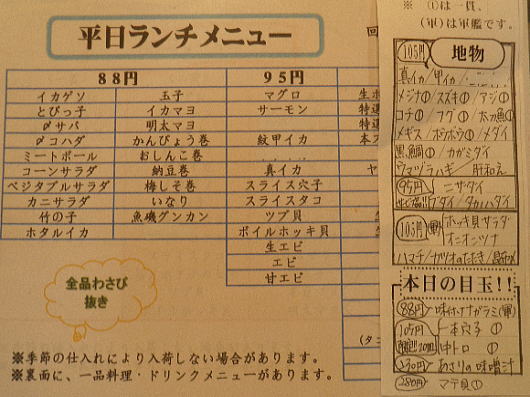 平日ランチメニュー
88円 95円
イカゲソ 玉子 マグロ
とびっ子 イカマヨ サーモン
〆サバ 明太マヨ
〆コハダ かんぴょう巻 紋甲イカ
ミートボール おしんこ巻
コーンサラダ 納豆巻 真イカ
ベジタブルサラダ 梅しそ巻 スライス穴子
カニサラダ いなり スライスタコ
竹の子 魚磯グンカン ツブ貝
ホタルイカ ボイルホッキ貝
生エビ
エビ
甘エビ
全品わさび
抜き
※季節の仕入れにより入荷しない場合があります。
※裏面に、一品料理・ドリンクメニューがあります。
※ ①は一貫、
(軍)は軍艦です。
105円 地物
真イカ/甲イカ
メジナ① スズキ① アジ①
コチ① フグ① 太刀魚①
メギス ホウボウ① メダイ
黒鯛① カガミダイ
ウマヅラハギ 肝和え
95円 ニザダイ
タカノハダイ
105円 軍 ホッキ貝サラダ
オニオンツナ
ハマチ/カツオのたたき
本日の目玉!!
88円 味付ナガラミ(軍)
105円 一本穴子①
中トロ①
130円 あさりの味噌汁
280円 マテ貝①